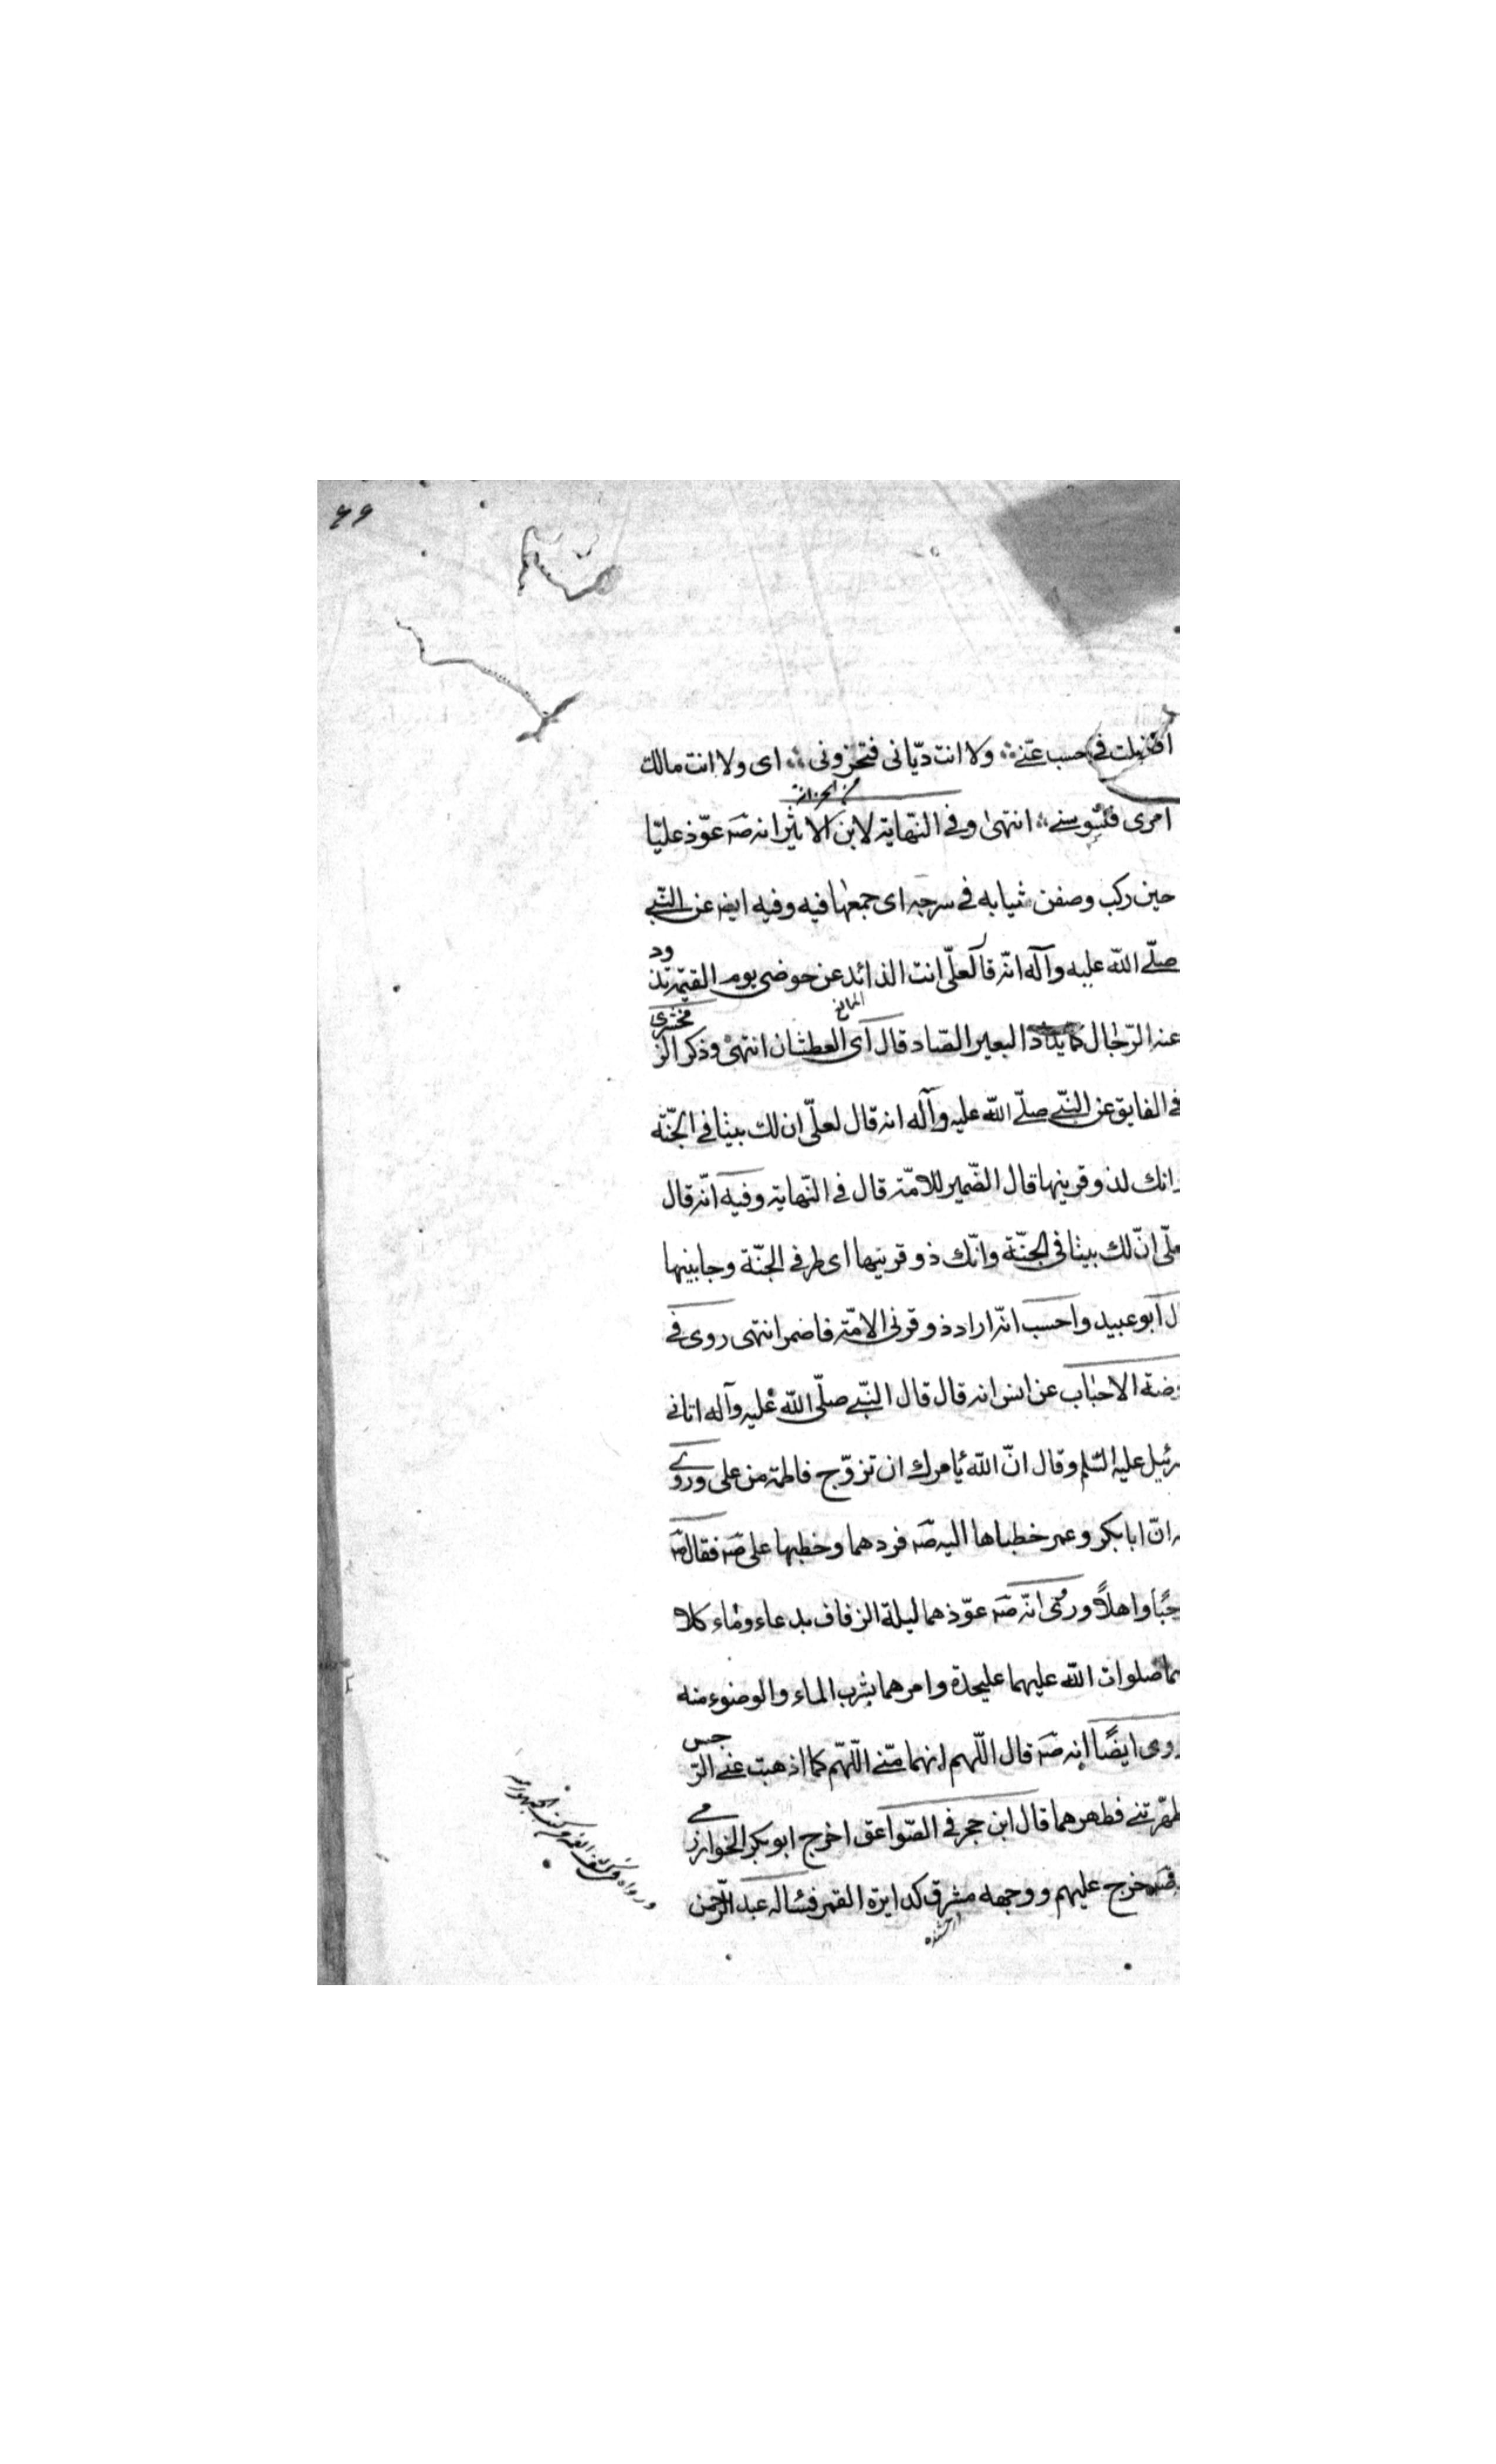 ۶۶
افضلت في حسب عنّي ∴ ولا انت ديّاني فتخزوني ∴ اى ولا انت مالك
امرى فتسوسني ∴ انتهىٰ وفي النّهاية لابن الاثير انه صَه عوّذ عليّا
حين ركب وصفن ثيابه في سرجه اى جمعها فيه وفيه ايضا عن النّبي
صلّى اللّه عليه وآله انّه قال لعلّى انت الذائد عن حوضى يوم القيٰمة تذود
المانع
عنه الرّجال كما يذاد البعير الصّاد قال اى العطشان انتهىٰ وذكر الزمخشرى
في الفايق عن النّبي صلّى اللّه عليه وآله انه قال لعلّى ان لك بيتا في الجنّة
وانك لذو قرينها قال الضّمير للامّة قال في النّهاية وفيه انّه قال
ملّى انّ لك بيتا في الجنّة وانّك ذو قرنيها اى طرفي الجنّة وجانبيها
ل ابو عبيد واحسب انّه اراد ذو قرنى الامّة فاضمر انتهى روى في
وضة الاحباب عن انس انه قال قال النّبي صلّى اللّه عليه وآله اتاني
رئيل عليه السّلم وقال انّ اللّه يامرك ان تزوّج فاطمة من على وروى
انّ ابا بكر وعمر خطباها اليه صَه فردهما وخطبها على صَه فقال صَه
حبًا واهلاً وروى انّه صَه عوّذهما ليلة الزفاف بدعاء وماء كلا
هما صلوات اللّه عليهما عليحدة وامرهما بشرب الماء والوضوء منه
روى ايضًا انه صَه قال اللّهم انهما منّي اللّهمّ كما اذهبت عنّي الرّجس
طهّرتني فطهرهما قال ابن حجر في الصّواعق اخرج ابو بكر الخوارزمي
صَه خرج عليهم ووجهه مشرق كدايرة القمر فسئاله عبد الرّحمن
ورواه